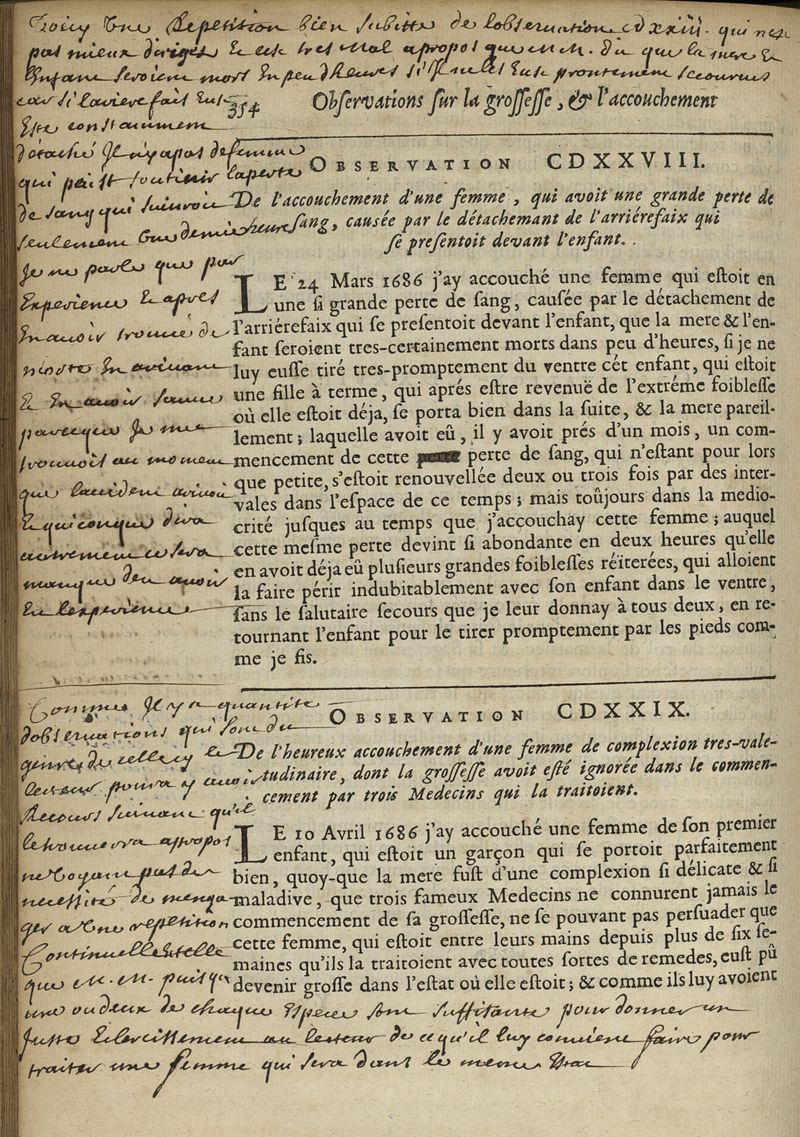 Voicy Une Repetition bien subitte de lobservation cdxxiii. qui nest
pas mieux dirigée Et est tres mal apropos que m. m. dit que la mere Et
Enfant seroient mort En peu dHeures s'ils neussEust prontement secourus
car si larierefais Eust
Estre constamment
détaché Il ny a pas de femme
qui puisse soutenir la perte
de sang qui suivroit
seulement Une demie heure
Je ne parle que par
Experience Et apres
En avoir trouvé de
En avoir
parceque Je me
trouvois au moment
que laccident arivoit
Et quiconque dira
autrement ce sera
manque den avoir
Eu lexperience
354 Observations sur la grossesse, & l'accouchement
OBSERVATION CDXXVIII.
De l'accouchement d'une femme, qui avoit une grande perte de
sang, causée par le détachemant de l'arriérefaix qui
se presentoit devant l'enfant.
LE 24 Mars 1686 j'ay accouché une femme qui estoit en
une si grande perte de sang, causée par le détachement de
l'arriérefaix qui se presentoit devant l'enfant, que la mere & l'en-
fant seroient tres-certainement morts dans peu d'heures, si je ne
luy eusse tiré tres-promptement du ventre cét enfant, qui estoit
une fille à terme, qui aprés estre revenuë de l'extréme foiblesse
où elle estoit déja, se porta bien dans la suite, & la mere pareil-
lement; laquelle avoit eû, il y avoit prés d'un mois, un com-
mencement de cette perte de sang, qui n'estant pour lors
que petite, s'estoit renouvellée deux ou trois fois par des inter-
vales dans l'espace de ce temps; mais toûjours dans la medio-
crité jusques au temps que j'accouchay cette femme; auquel
cette mesme perte devint si abondante en deux heures qu'elle
en avoit déja eû plusieurs grandes foiblesses réïterées, qui alloient
la faire périr indubitablement avec son enfant dans le ventre,
sans le salutaire secours que je leur donnay à tous deux, en re-
tournant l'enfant pour le tirer promptement par les pieds com-
me je fis.
Comme Il y a quantité
dobservations qui sont du
genre de celle cy le
lecteur poura y avoir
Recours suivant qu'il
le trouvera apropos
ne voyant pas de
necessité de
ger a Une repetition
Continuelle telle
que m. m. puisqu
OBSERVATION CDXXIX.
De l'heureux accouchement d'une femme de complexion tres-vale-
tudinaire, dont la grossesse avoit esté ignorée dans le commen-
cement par trois Medecins qui la traitoient.
LE 10 Avril 1686 j'ay accouché une femme de son premier
enfant, qui estoit un garçon qui se portoit parfaitement
bien, quoy-que la mere fust d'une complexion si délicate & si
maladive, que trois fameux Medecins ne connurent jamais le
commencement de sa grossesse, ne se pouvant pas persuader que
cette femme, qui estoit entre leurs mains depuis plus de six se-
maines qu'ils la traitoient avec toutes sortes de remedes, eust pû
devenir grosse dans l'estat où elle estoit; & comme ils luy avoient
une ou deux de chaque Espece sont suffisante pour donner un
Juste Eclercissement au lecteur de ce qu'il luy convient faire pour
traiter une femme qui sera dans le meme Etat